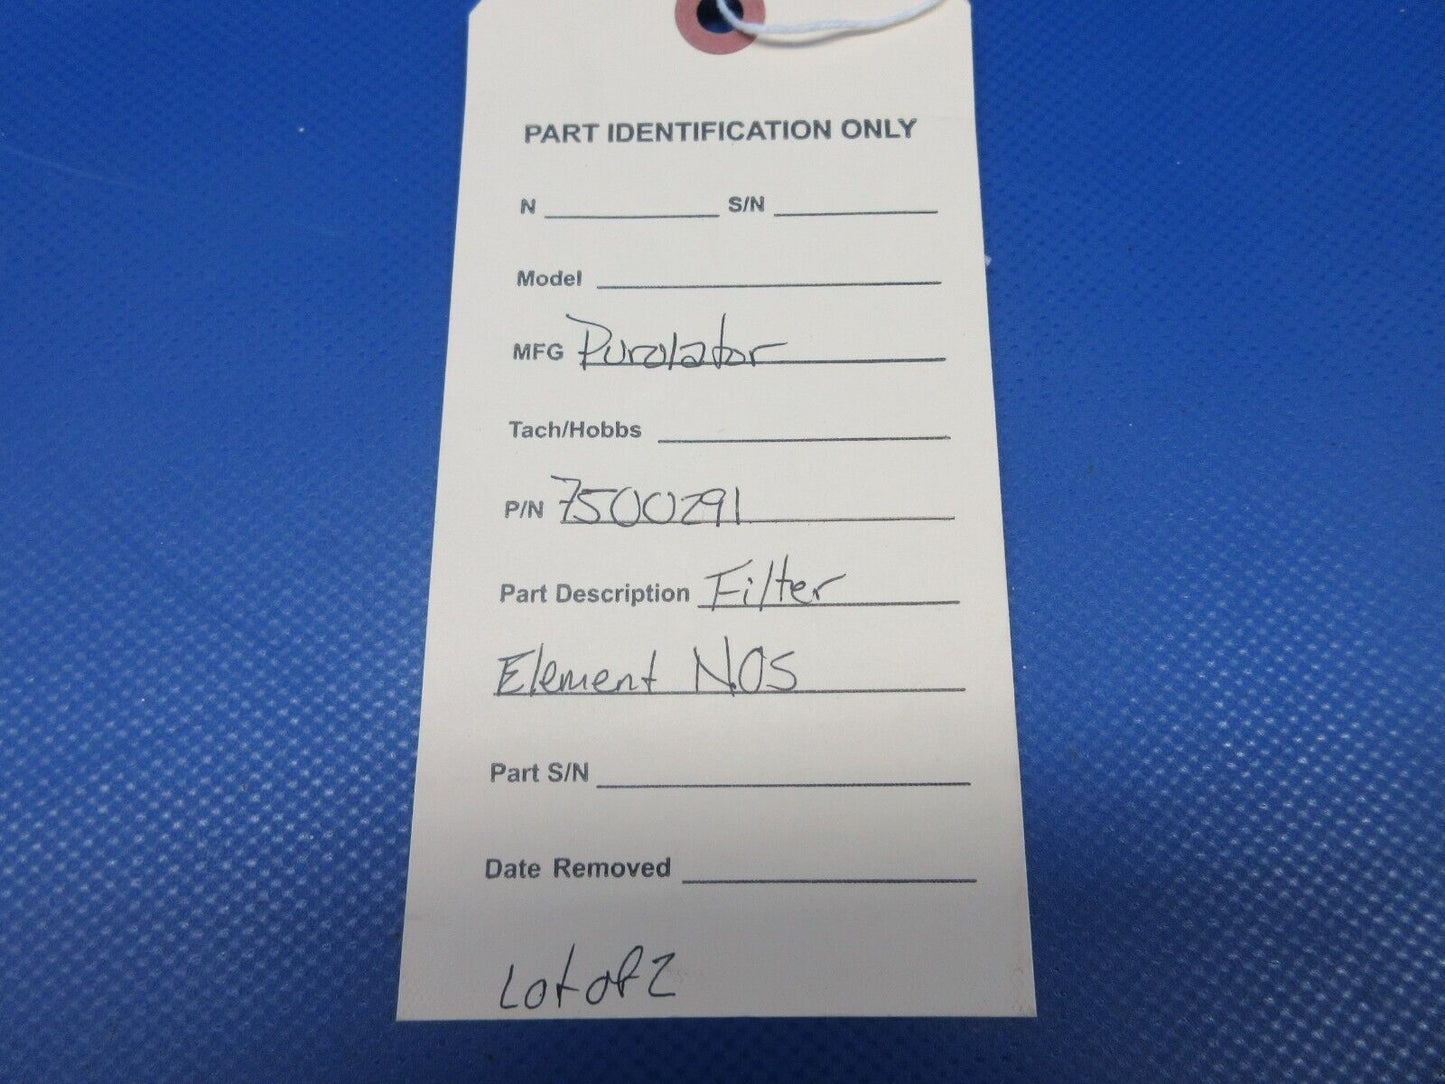 PART IDENTIFICATION ONLY
N S/N
Model
MFG Purolator
Tach/Hobbs
P/N 7500291
Part Description Filter
Element NOS
Part S/N
Date Removed
Lot of 2